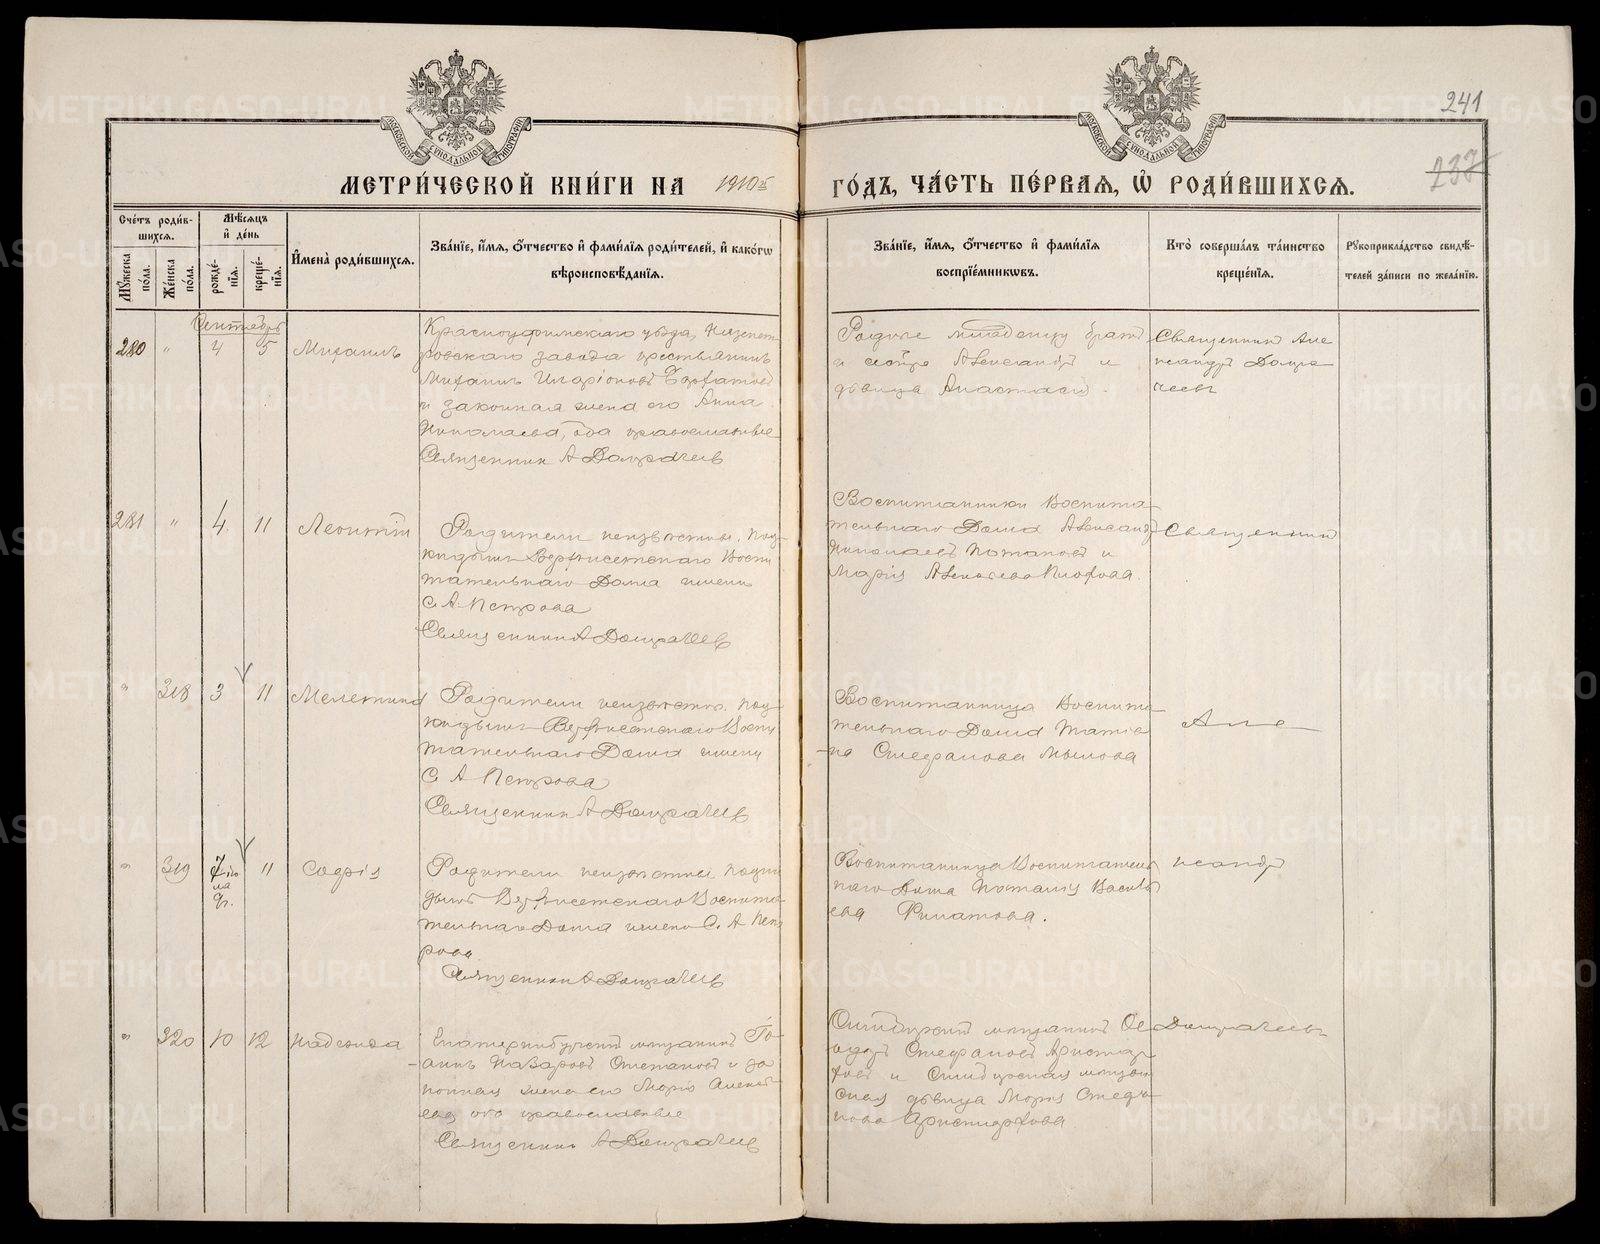 241
237
МЕТРИ́ЧЕСКОЙ КНИ́ГИ НА 1910й ГО́ДЪ, ЧА́СТЬ ПЕ́РВАЯ, Ѡ҆ РОДИ́ВШИХСЯ.
Сче́тъ роди́вшихся.
Мѣ́сяцъ и҆ де́нь
Мꙋ́жеска по́ла.
Же́нска по́ла.
рожде́нїя.
креще́нїя.
И҆мена̀ роди́вшихся.
Зва́нїе, и҆́мя, ѻ҆́тчество и҆ фами́лїя роди́телей, и҆ како́гѡ
вѣроисповѣ́данїя.
Зва́нїе, и҆́мя, ѻ҆́тчество и҆ фами́лїя
воспрїе́мникѡвъ.
Кто̀ соверша́лъ та́инство
креще́нїя.
Рꙋкоприкла́дство свидѣ́телей за́писи по жела́нїю.
Сентябрь
280 " 4 5 Михаилъ
Красноуфимскаго уѣзда, Нязепет
ровскаго завода крестьянинъ
Михаилъ Иларіоновъ
и законная жена его Анна
Николаева, оба православные
Священникъ А Домрачевъ
Родные младенцу братъ
и сестра Александръ и
дѣвица Анастасія.
Священникъ Але
ксандръ Домра
чевъ
281 " 4 11 Леонтій
Родители неизвѣстны. Под
кидышъ Верхисетскаго Воспи
тательнаго Дома имени
С. А. Петрова
Священникъ А Домрачевъ
Воспитанники Воспита
тельнаго Дома Александръ
Николаевъ Потаповъ и
Марія Алексѣева
Священникъ
" 318 3 11 Мелетина
Родители неизвѣстн. Под
кидышъ Верхисетскаго Воспи
тательнаго Дома имени
С. А Петрова
Священникъ А Домрачевъ
Воспитанница Воспита
тельнаго Дома Татiа
на Стефанова Мылова
Але
" 319 7 іюля 11 Софія
Родители неизвѣстны Подки
дышъ Верхисетскаго Воспита
тельнаго Дома имени С. А Пет
рова
Священникъ А Домрачевъ
Воспитанница Воспитатель
наго Дома Васильева
Филатова.
ксандръ
" 320 10 12 Надежда
Екатеринбургскій мѣщанинъ Іо
аннъ Назаровъ Степановъ и за
конная жена его Марія Алексѣ
ева, оба православные
Священникъ А Домрачевъ
Симбирскій мѣщанинъ Ѳе
одоръ Стефановъ Аристар
ховъ и Симбирская мѣщан
ская дѣвица Марія Стефа
нова Аристархова
Домрачевъ